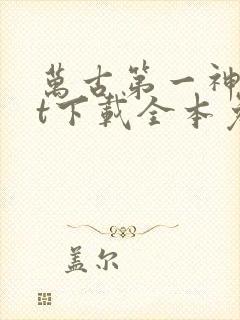 萬古第一神
t下載全本
盖尔